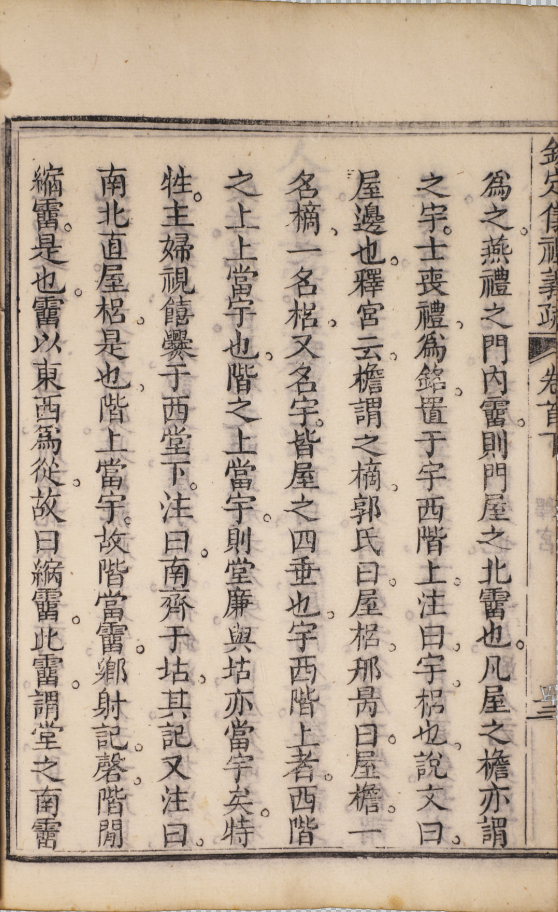 欽定儀禮義疏 卷首下
為之燕禮之門內霤則門屋之北霤也。凡屋之檐亦謂
之宇。士喪禮為銘。置于宇西階上。注曰。宇梠也。說文曰。
屋邊也。釋宮云。檐謂之樀。郭氏曰。屋梠。邢昺曰。屋檐。一
名樀。一名梠。又名宇。皆屋之四垂也。宇西階上者。西階
之上。上當宇也。階之上當宇。則堂廉與坫亦當宇矣。特
牲。主婦視饎爨于西堂下。注曰。南齊于坫。其記又注曰。
南北直屋梠是也。階上當宇。故階當霤。鄉射記。磬階閒
縮霤。是也。霤以東西為從。故曰縮霤。此霤謂堂之南霤